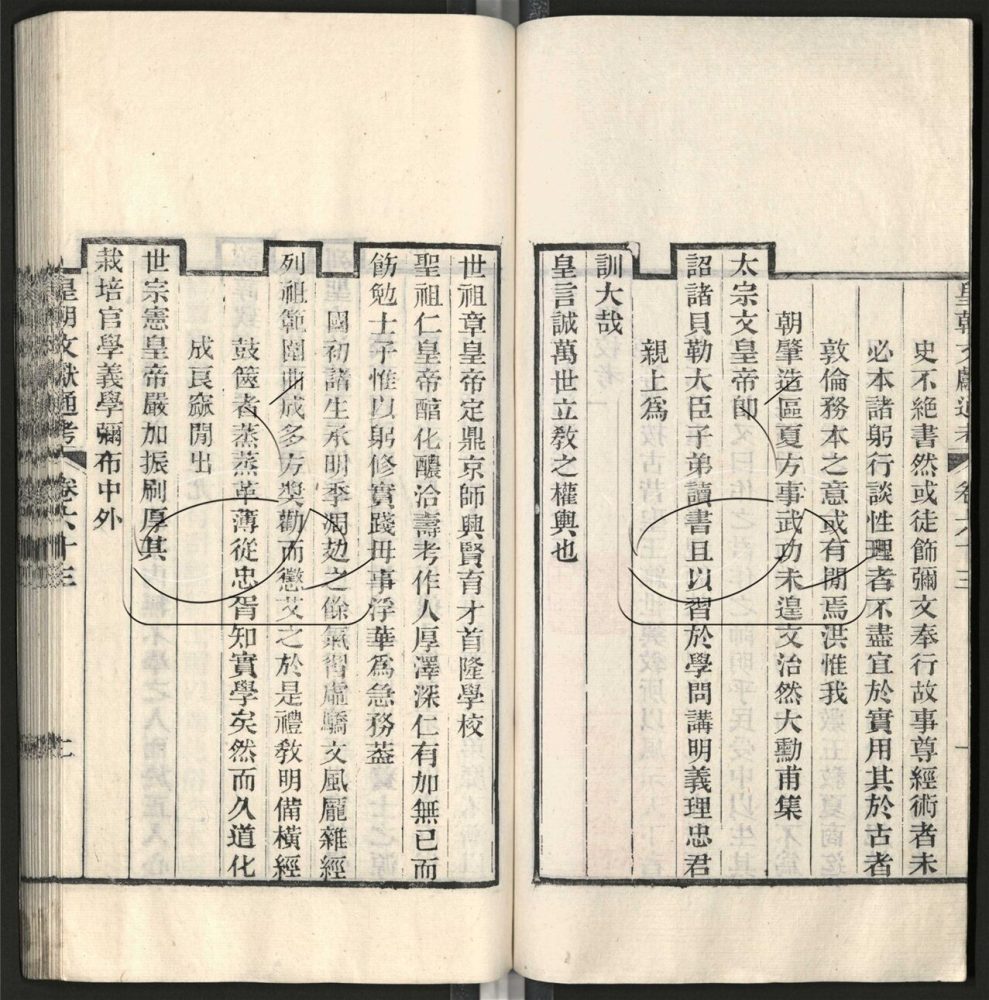 皇朝文獻通考 卷六十三 一
史不絕書然或徒飾彌文奉行故事尊經術者未
必本諸躬行談性理者不盡宜於實用其於古者
敦倫務本之意或有閒焉洪惟我
朝肇造區夏方事武功未遑文治然大勳甫集
太宗文皇帝卽
詔諸貝勒大臣子弟讀書且以習於學問講明義理忠君
親上爲
訓大哉
皇言誠萬世立敎之權輿也
世祖章皇帝定鼎京師興賢育才首隆學校
聖祖仁皇帝醇化醲洽壽考作人厚澤深仁有加無已而
飭勉士子惟以躬修實踐毋事浮華爲急務蓋
國初諸生承明季凋敝之餘氣習虛驕文風龐雜經
列祖範圍曲成多方奬勸而懲艾之於是禮敎明備橫經
鼓篋者蒸蒸革薄從忠胥知實學矣然而久道化
成良窳閒出
世宗憲皇帝嚴加振刷厚其
栽培官學義學彌布中外
皇朝文獻通考 卷六十三